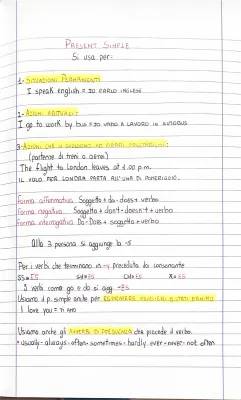 PRESENT SIMPLE
Si usa per:
1- SITUAZIONI PERMANENTI
I speak english = IO PARLO INGLESE
2- AZIONI ABITUALI
I go to work by bus = IO VADO A LAVORO IN AUTOBUS
3- AZIONI CHE SI SVOLGONO IN ORARI
(partenze di treni o aerei)
The flight to London leaves at 1.00 p.m.
IL VOLO PER LONDRA PARTA ALL'UNA DI POMERIGGIO.
Forma affermativa Soggetto + do - does + verbo
Forma negativa Soggetto + don't - doesn't + verbo
Forma interrogativa Do - Does + soggetto + verbo
Alla 3 persona si aggiunge la -s
Per i verbi che terminano in -y preceduta da consonante
SS = ES SH = ES CH = ES X = ES
I verbi come go e do si agg -ES
Usiamo il p. simple anche per ESPRIMERE
I love you = ti amo
Usiamo anche gli AVVERBI DI FREQUENZA che precede il verbo.
• usually - always - often - sometimes - hardly ever - never - not often